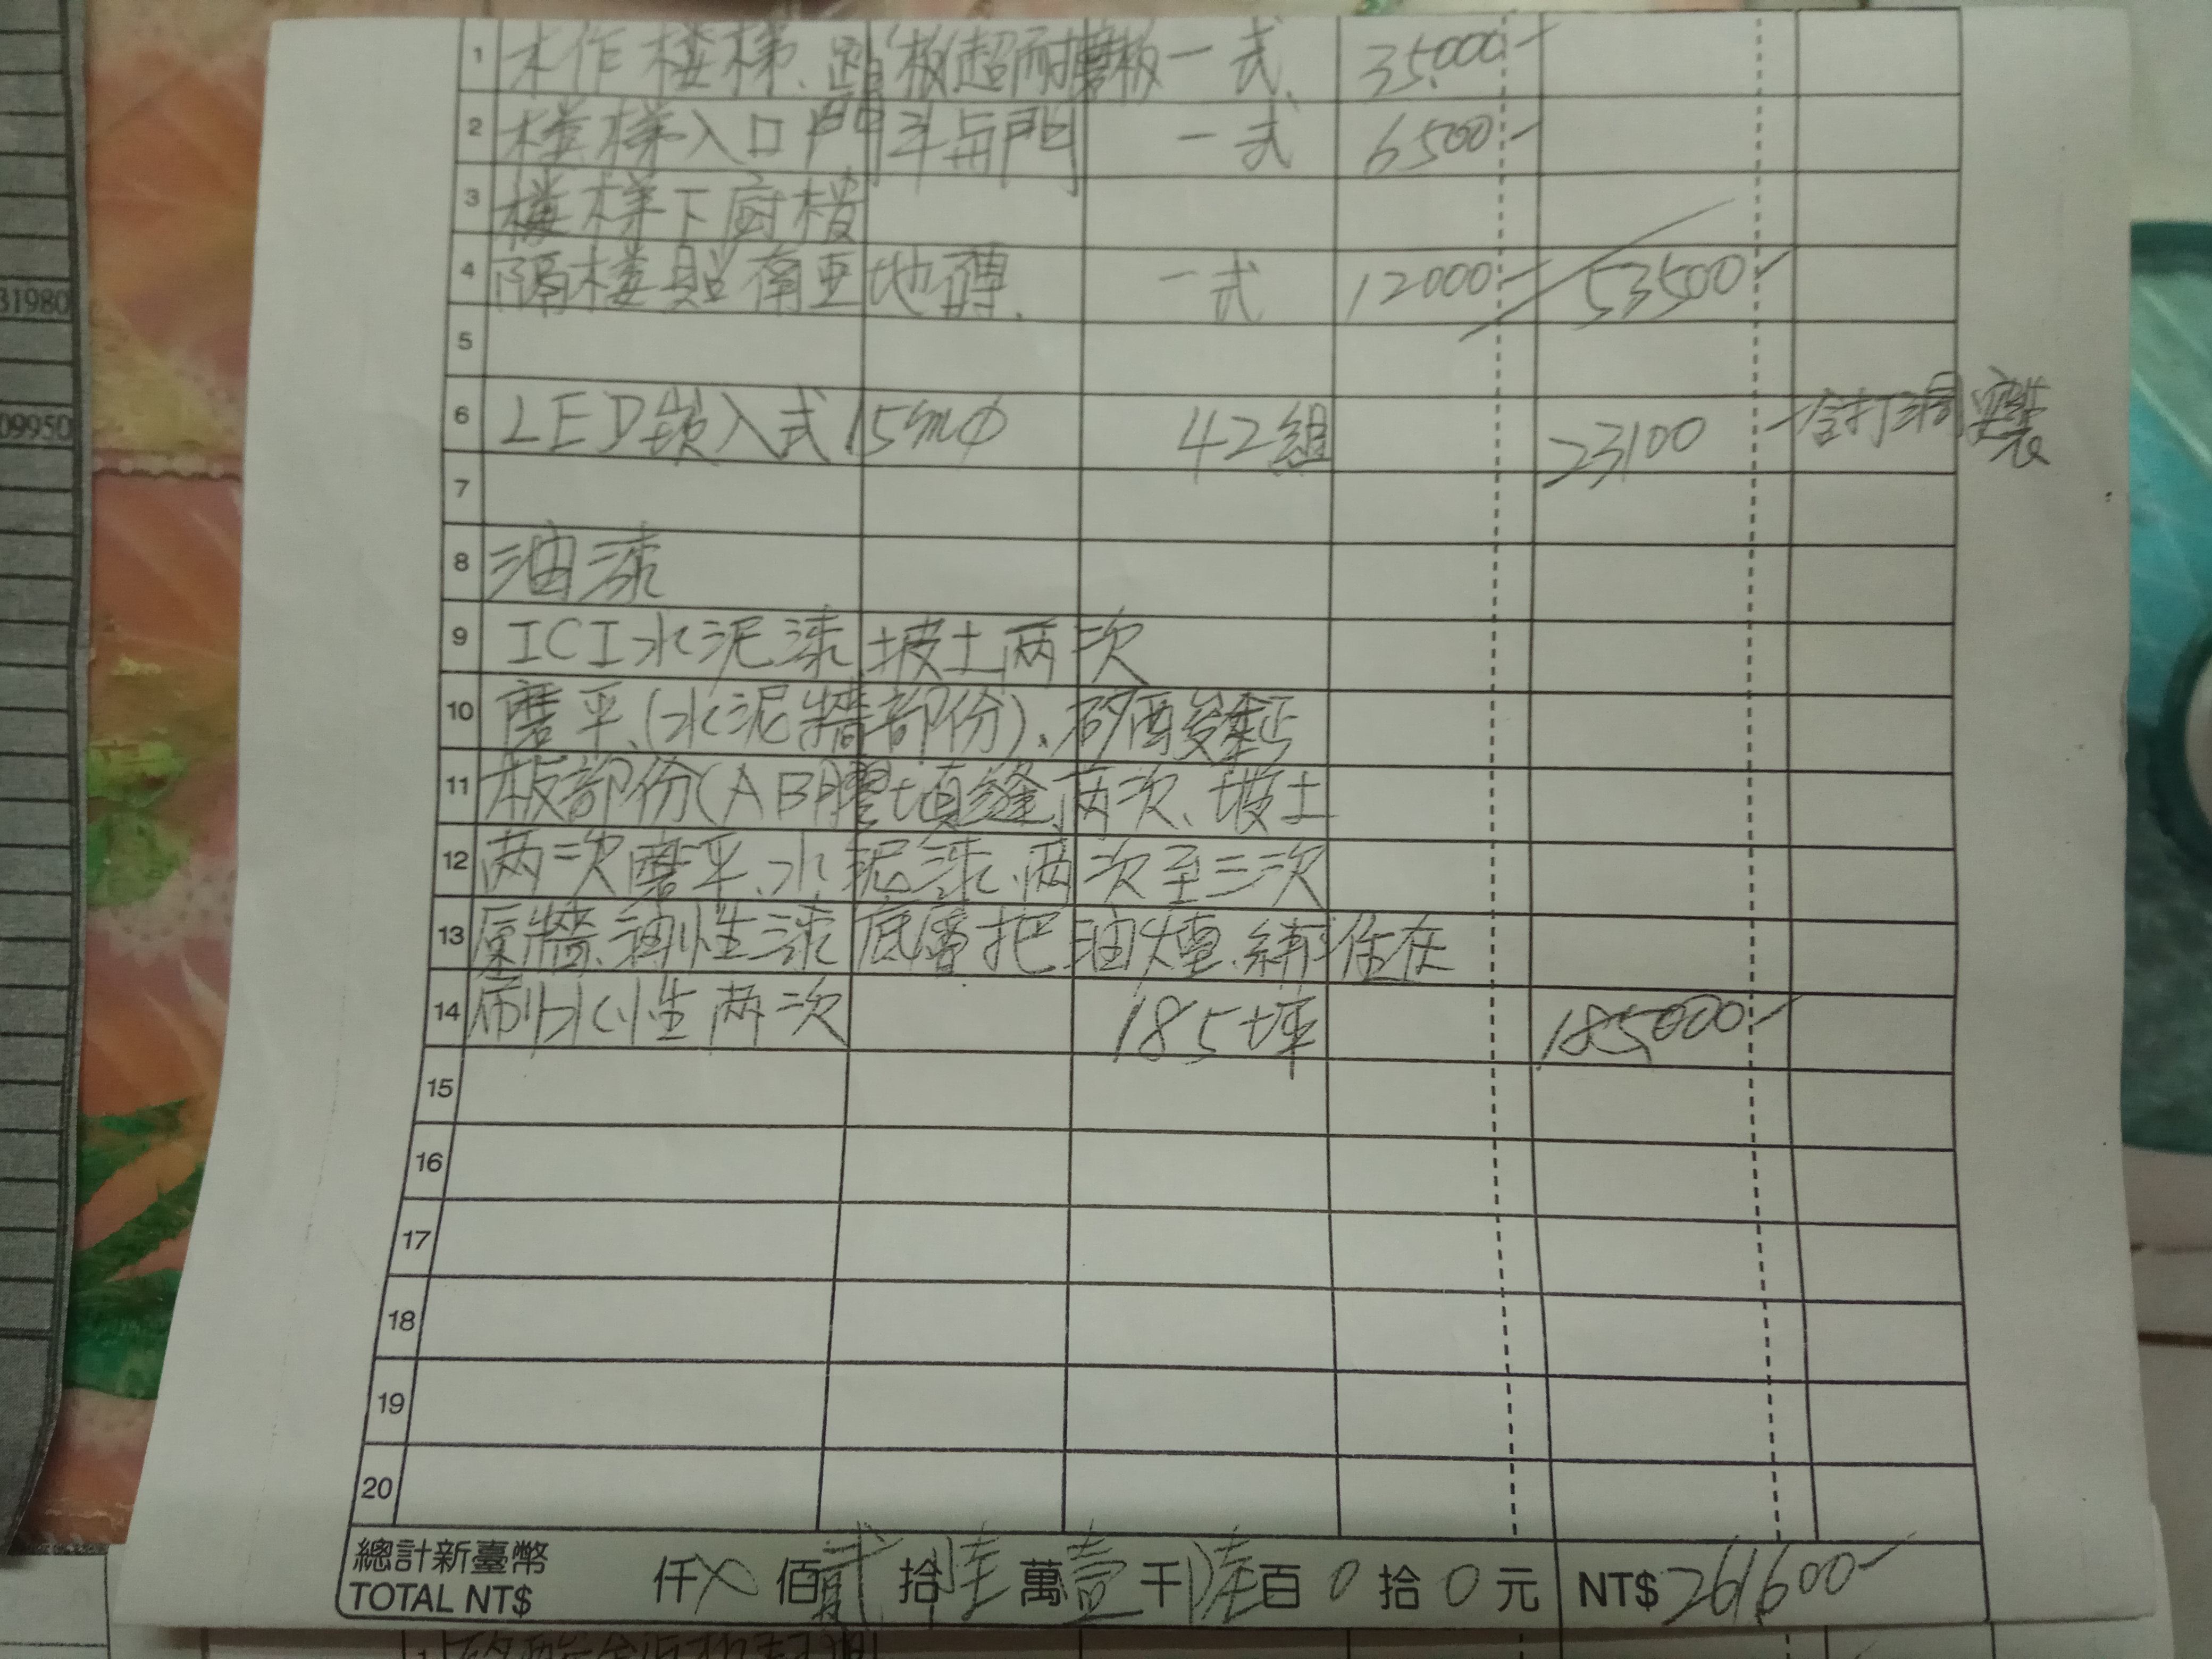 1 木作楼梯、踏板(超耐磨板 一式、 35,000-
2 楼梯入口門斗与門 一式 6500-
3 楼梯下廚櫃
4 隔楼貼南亜地磚、 一式 12000- 53500-
5
6 LED崁入式15cmφ 42組 23100 - 含打洞安裝
7
8 油漆
9 ICI水泥漆坡土両次
10 磨平、(水泥牆部份)、矽酸鈣
11 板部份(AB膠填縫、両次、坡土
12 両次磨平、水泥漆、両次至三次
13 原牆、油性漆底層把油煙、 住在
14 刷水性両次 185坪 185000-
15
16
17
18
19
20
31980
09950
總計新臺幣 仟 佰貳拾陸萬壹千陸百0拾0元 NT$261600-
TOTAL NT$